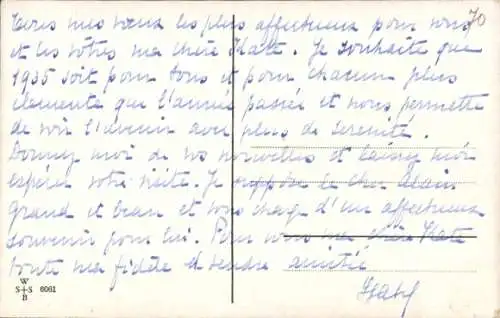 Tous mes vœux les plus affectueux pour vous 70
et les vôtres ma chère Kate. Je souhaite que
1935 soit pour tous et pour chacun plus
clémente que l'année passée et nous permette
de voir l'avenir avec plus de serenité.
Donnez moi de vos nouvelles et laissez moi
espérer votre visite. Je suppose le cher Alain
grand et beau et vous charge d'un affectueux
souvenir pour lui. Pour vous ma chère Kate
toute ma fidèle et tendre amitié
W
S S 6061
B